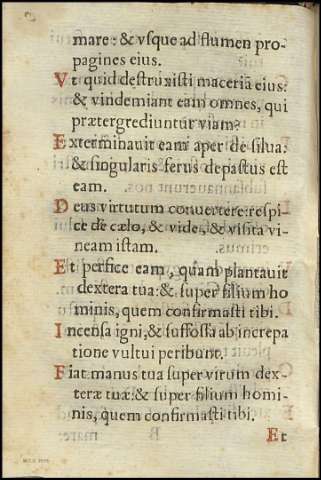 mare: & vsque ad flumen pro-
pagines eius.
Vt quid destruxisti maceriã eius:
& vindemiant eam omnes, qui
prætergrediuntur viam?
Exterminauit eam aper de silua:
& singularis ferus depastus est
eam.
Deus virtutum conuertere: respi-
ce de cælo, & vide, & visita vi-
neam istam.
Et perfice eam, quam plantauit
dextera tua: & super filium ho
minis, quem confirmasti tibi.
Incensa igni, & suffossa ab increpa
tione vultui peribunt.
Fiat manus tua super virum dex-
teræ tuæ: & super filium homi-
nis, quem confirmasti tibi.
Et